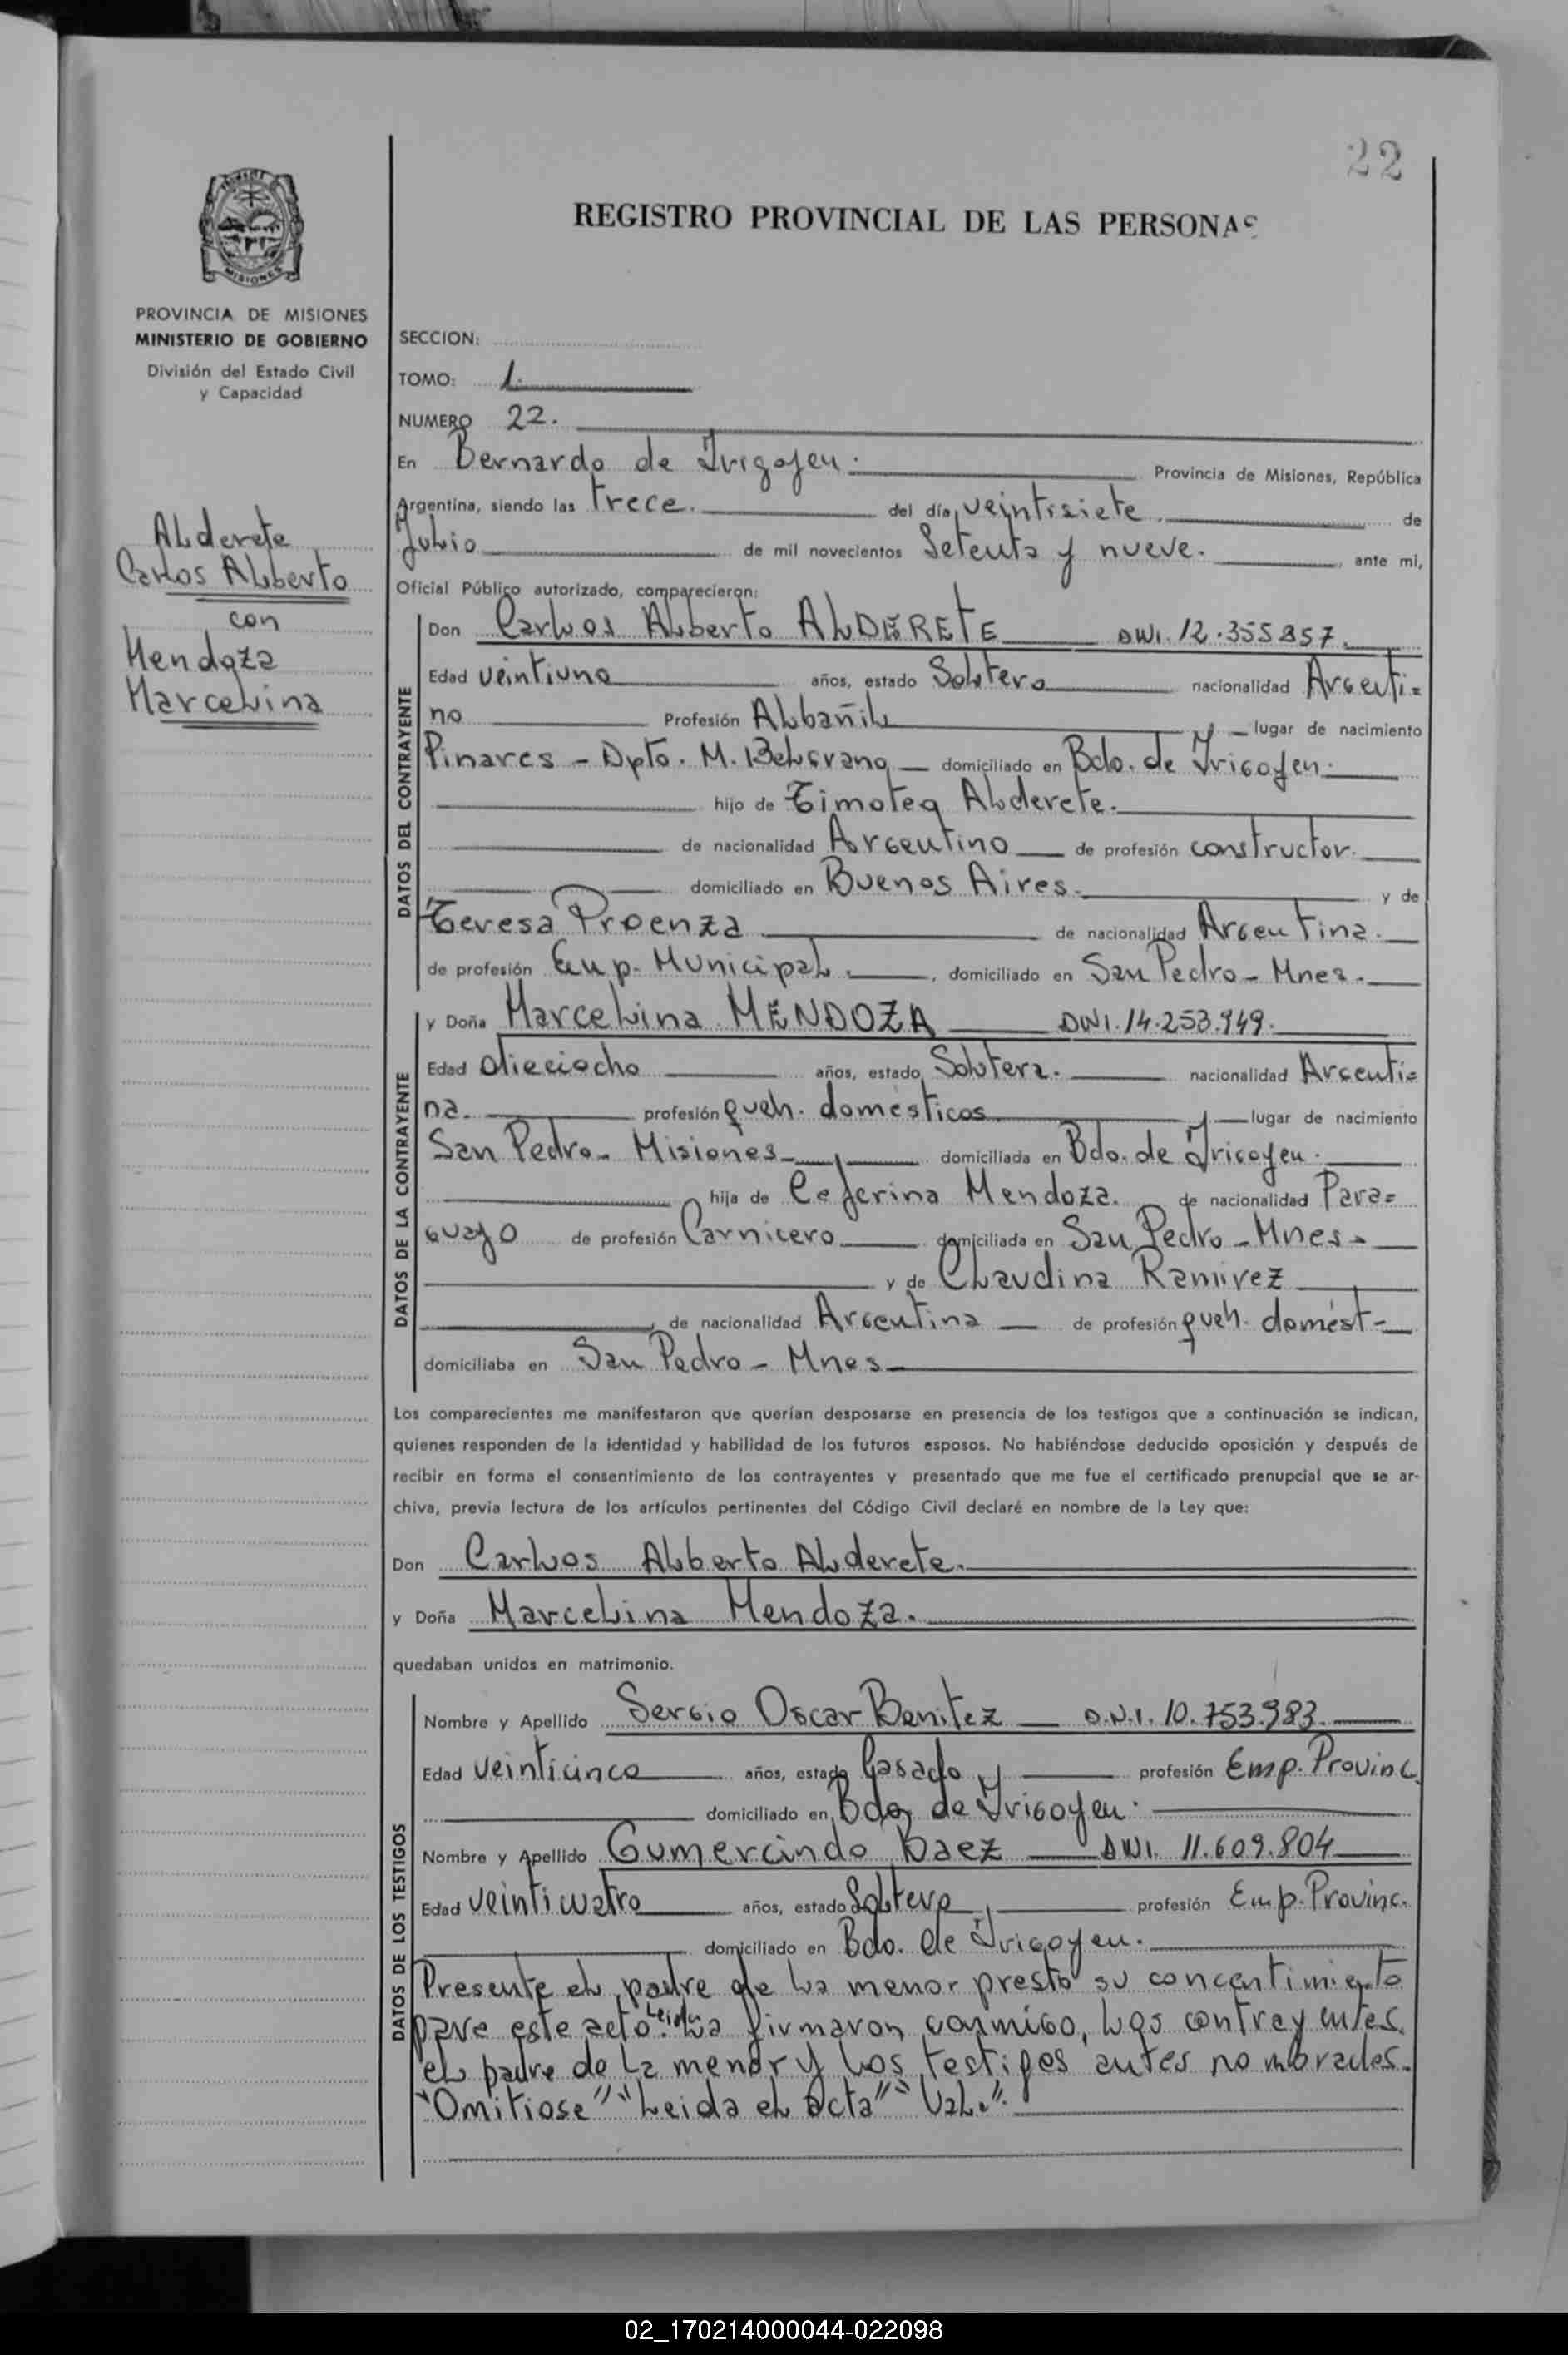 22
REGISTRO PROVINCIAL DE LAS PERSONAS
MISIONES
PROVINCIA DE MISIONES
MINISTERIO DE GOBIERNO
División del Estado Civil
y Capacidad
SECCION:
TOMO: 1.
NUMERO 22.
En Bernardo de Irigoyen. Provincia de Misiones, República
Argentina, siendo las trece. del día veintisiete. de
Julio de mil novecientos Setenta y nueve. ante mi,
Oficial Público autorizado, comparecieron:
Alderete
Carlos Alberto
con
Mendoza
Marcelina
DATOS DEL CONTRAYENTE
Don Carlos Alberto ALDERETE DNI. 12.355857.
Edad veintiuno años, estado Soltero nacionalidad Argenti=
no Profesión Albañil y lugar de nacimiento
Pinares - Dpto. M. Belgrano domiciliado en Bdo. de Irigoyen.
hijo de Timoteo Alderete.
de nacionalidad Argentino de profesión constructor.
domiciliado en Buenos Aires. y de
Teresa Proenza de nacionalidad Argentina.
de profesión Emp. Municipal. domiciliado en San Pedro - Mnes.
DATOS DE LA CONTRAYENTE
y Doña Marcelina MENDOZA DNI. 14.253.949.
Edad dieciocho años, estado Soltera. nacionalidad Argenti=
na. profesión queh. domésticos y lugar de nacimiento
San Pedro - Misiones domiciliada en Bdo. de Irigoyen.
hija de Ceferino Mendoza. de nacionalidad Para=
guayo de profesión Carnicero domiciliada en San Pedro - Mnes.
y de Claudina Ramirez
de nacionalidad Argentina de profesión queh. domést-
domiciliaba en San Pedro - Mnes
Los comparecientes me manifestaron que querían desposarse en presencia de los testigos que a continuación se indican,
quienes responden de la identidad y habilidad de los futuros esposos. No habiéndose deducido oposición y después de
recibir en forma el consentimiento de los contrayentes y presentado que me fue el certificado prenupcial que se ar-
chiva, previa lectura de los artículos pertinentes del Código Civil declaré en nombre de la Ley que:
Don Carlos Alberto Alderete.
y Doña Marcelina Mendoza.
quedaban unidos en matrimonio.
DATOS DE LOS TESTIGOS
Nombre y Apellido Sergio Oscar Benitez D.N.I. 10.753.983.
Edad veinticinco años, estado Casado y profesión Emp. Provinc.
domiciliado en Bdo. de Irigoyen.
Nombre y Apellido Gumercindo Baez DNI. 11.609.804
Edad veinticuatro años, estado Soltero, profesión Emp. Provinc.
domiciliado en Bdo. de Irigoyen.
Presente el padre de la menor presto su concentimiento
para este acto. Leida La firmaron conmigo, los contrayentes.
el padre de la menor y los testigos antes nombrados.
"Omitiose" "Leida el acta" "Vale".
02_170214000044-022098